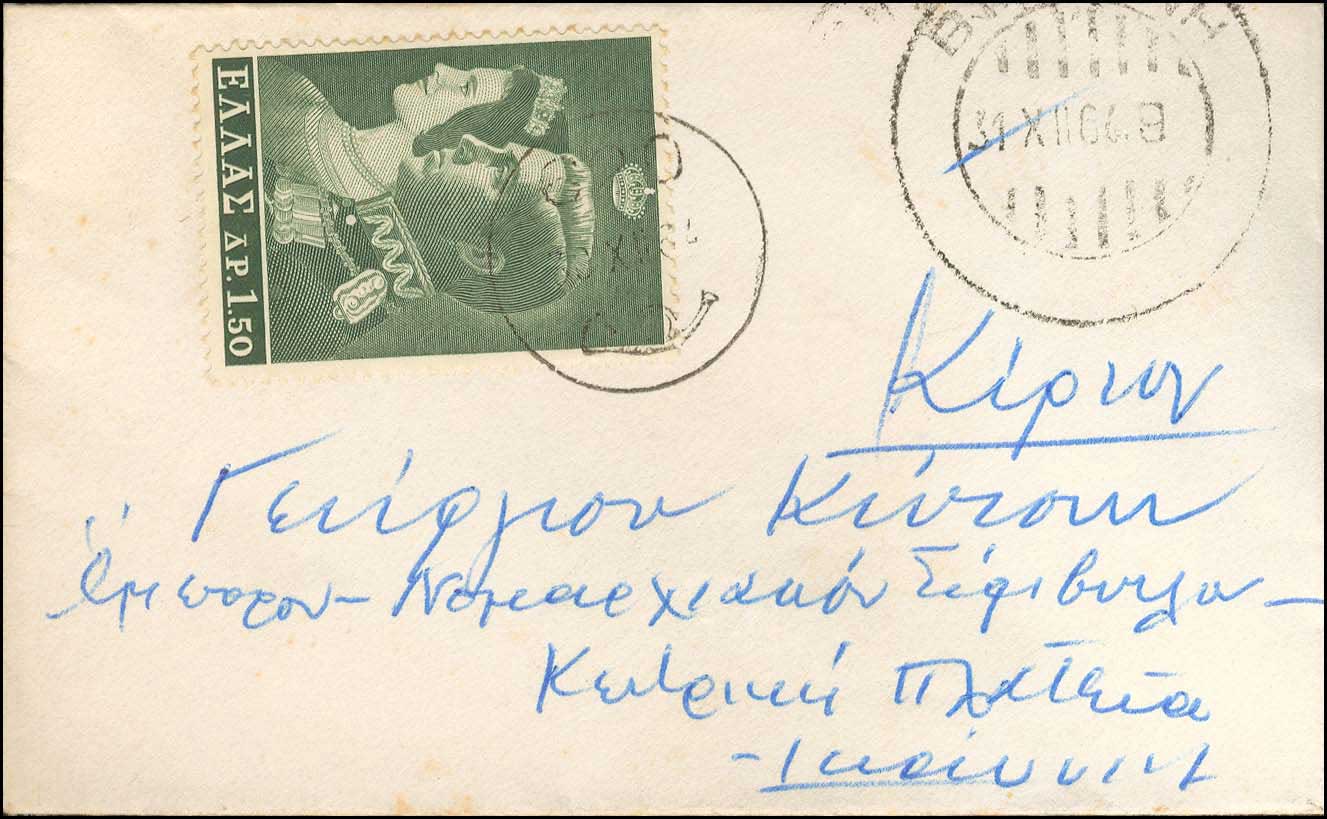 ΕΛΛΑΣ ΔΡ. 1.50
31 XII 66.8
Κύριον
Γεώργιον
Έμπορον - Νομαρχιακόν Σύμβουλον -
Κεντρική Πλατεία
- Ιωάννινα